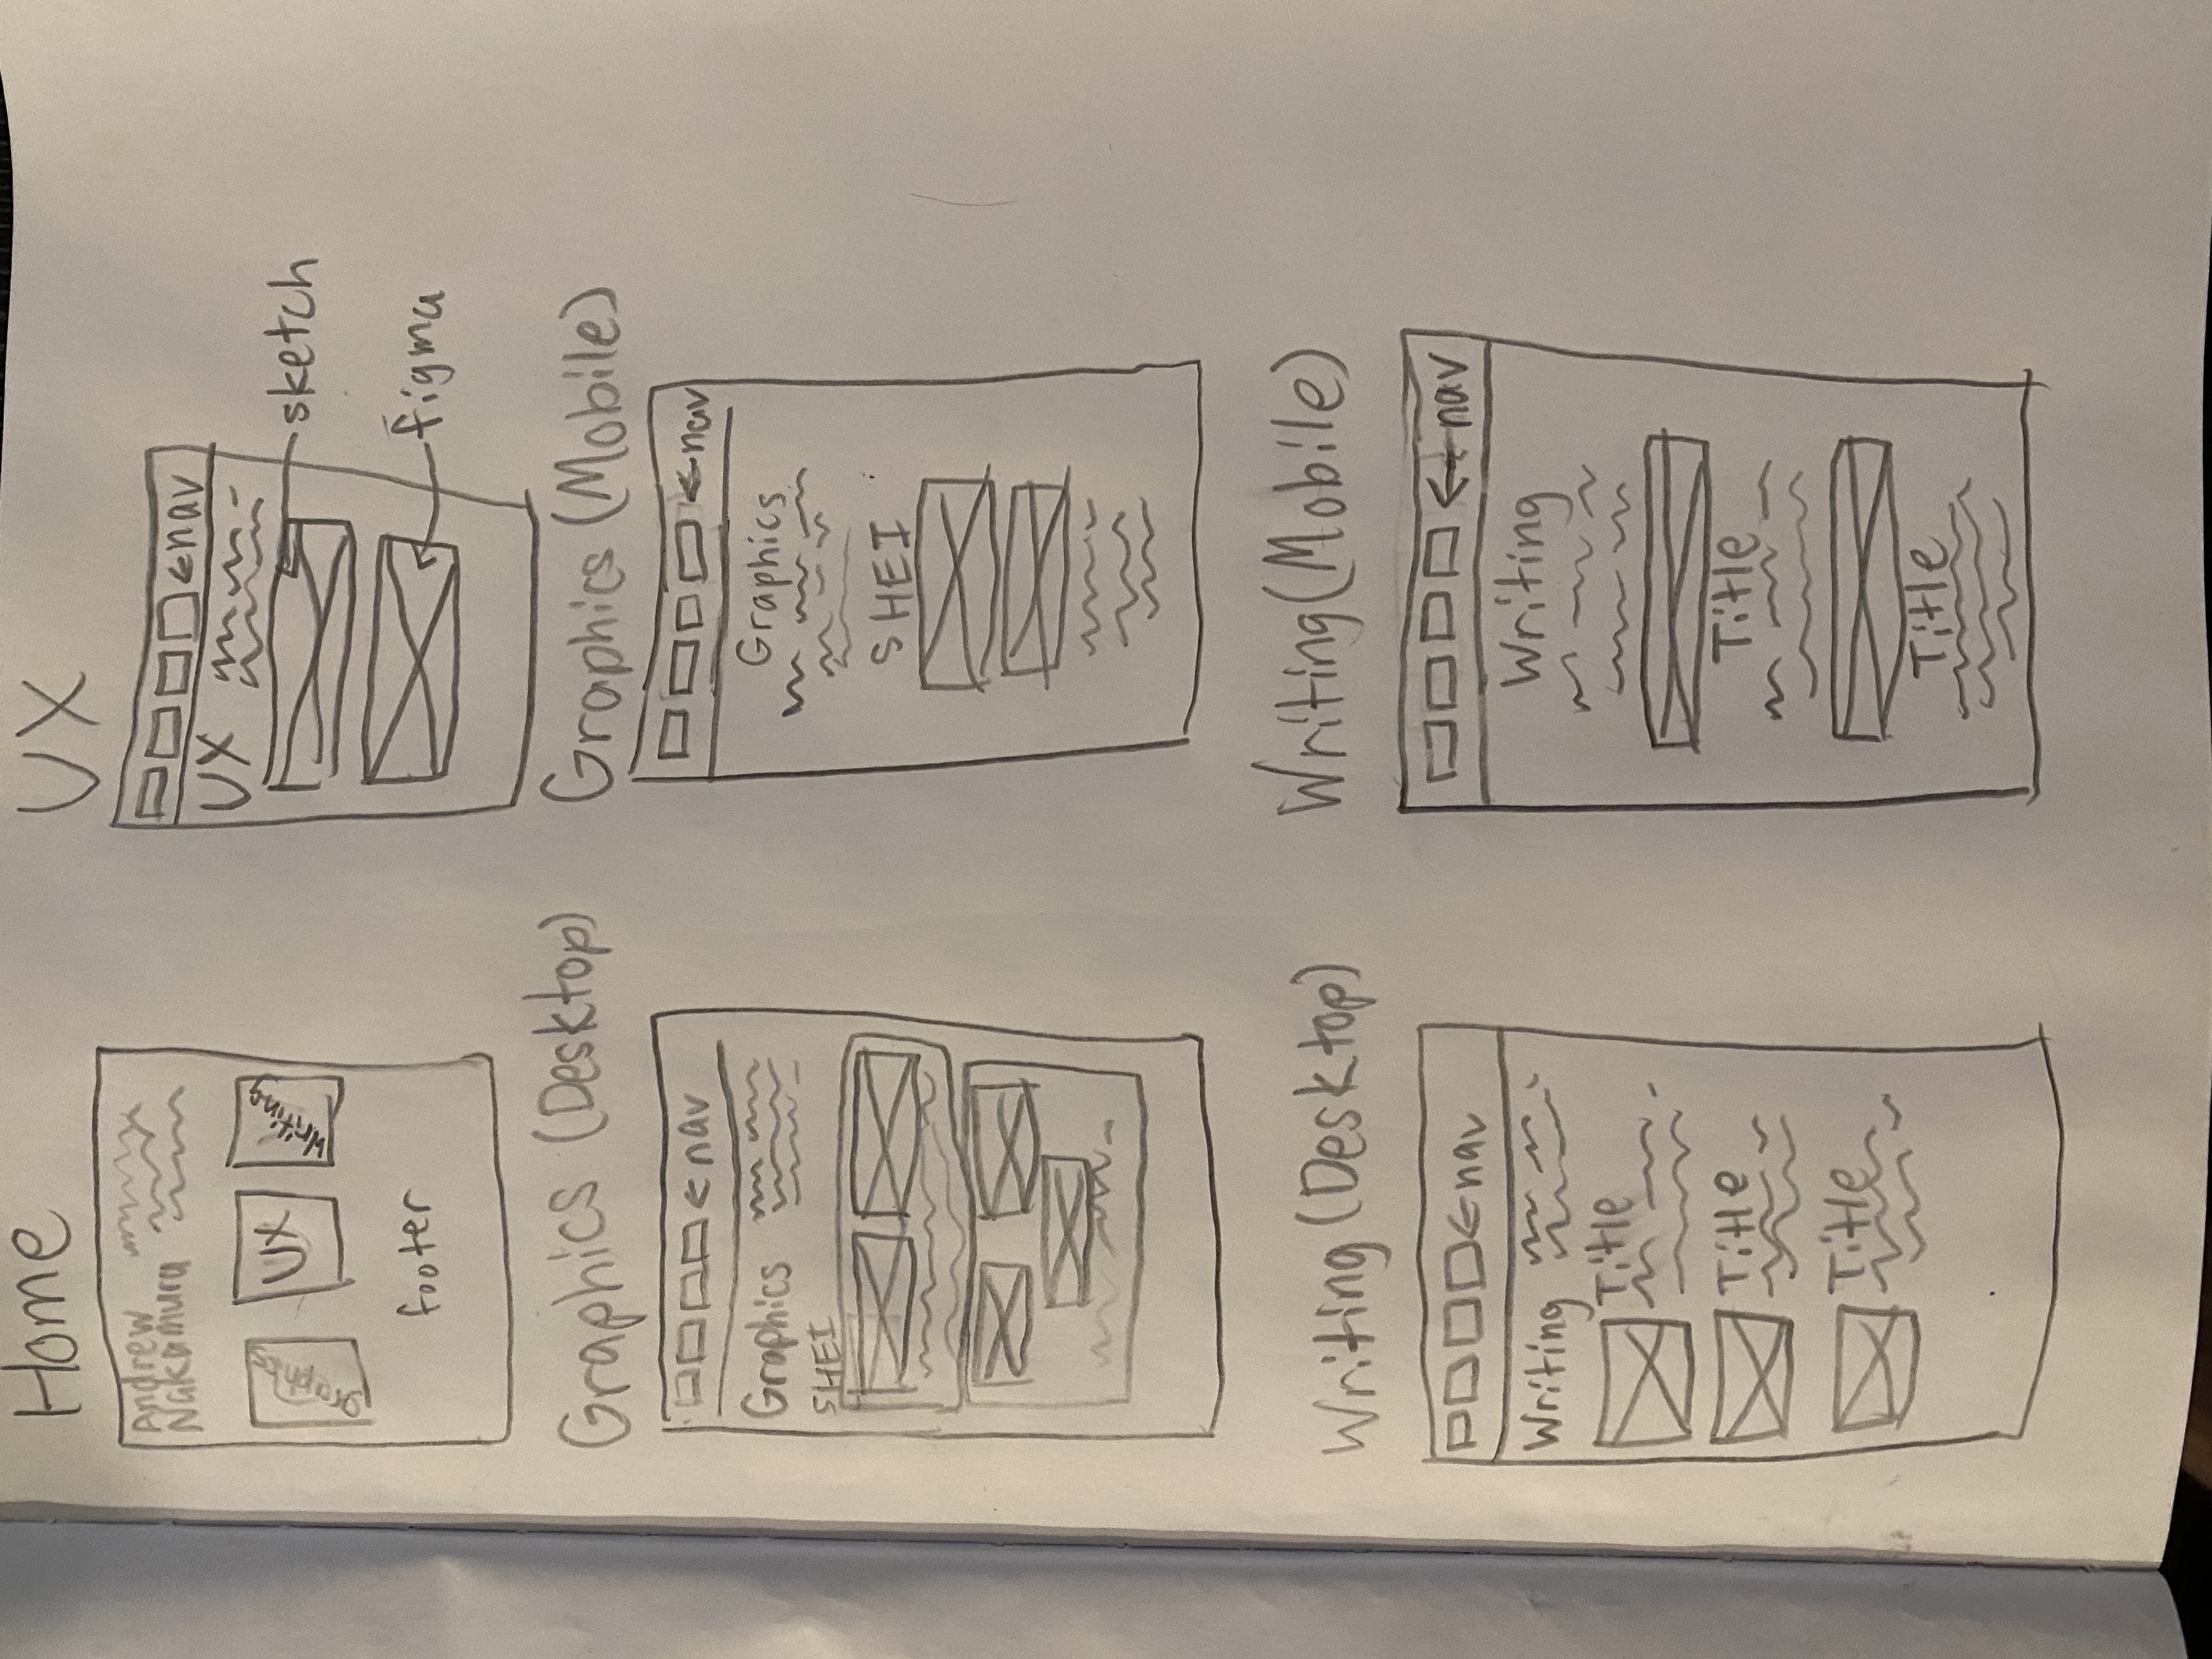 Home
Andrew
Nakamura
Graphics
UX
Writing
footer
UX
←nav
UX
sketch
figma
Graphics (Desktop)
←nav
Graphics
SHEI
Graphics (Mobile)
←nav
Graphics
SHEI
Writing (Desktop)
←nav
Writing
Title
Title
Title
Writing (Mobile)
←nav
Writing
Title
Title